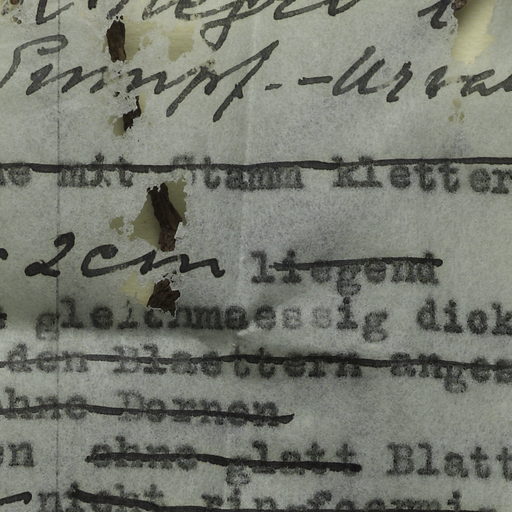 negro
Sumpf.-Urwal
ne mit Stamm kletter
2cm liegend
gleichmaessig dick
den Blaettern anges
ohne Dornen
en ohne glatt Blatt
nicht rinfoermig